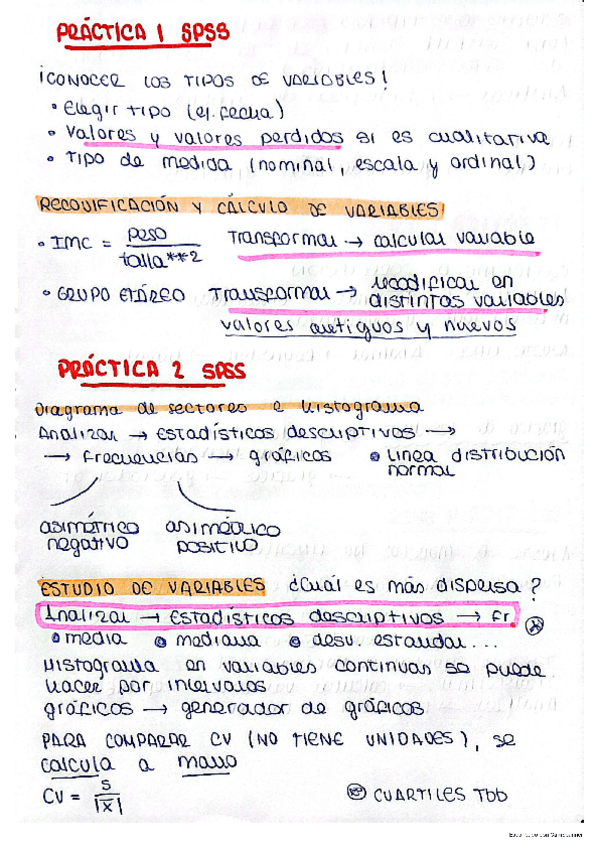 PRÁCTICA 1 SPSS
¡CONOCER LOS TIPOS DE VARIABLES!
• Elegir TIPO (ej. fecha)
• Valores y valores perdidos si es cualitativa
• TIPO de medida (nominal, escala y ordinal)
RECODIFICACIÓN Y CÁLCULO DE VARIABLES
• IMC = peso / talla**2 Transformar → calcular variable
• GRUPO ETÁREO Transformar → recodificar en distintas variables
valores antiguos y nuevos
PRÁCTICA 2 SPSS
Diagrama de sectores e histograma
Analizar → Estadísticos descriptivos →
→ Frecuencias → gráficos • línea distribución normal
asimétrico negativo asimétrico positivo
ESTUDIO DE VARIABLES ¿Cuál es más dispersa?
Analizar → Estadísticos descriptivos → Fr
• media • mediana • desv. estandar...
Histograma en variables continuas se puede
hacer por intervalos
gráficos → generador de gráficos
PARA COMPARAR CV (NO TIENE UNIDADES), se
calcula a mano
CV = S / |X̄| CUARTILES TDD